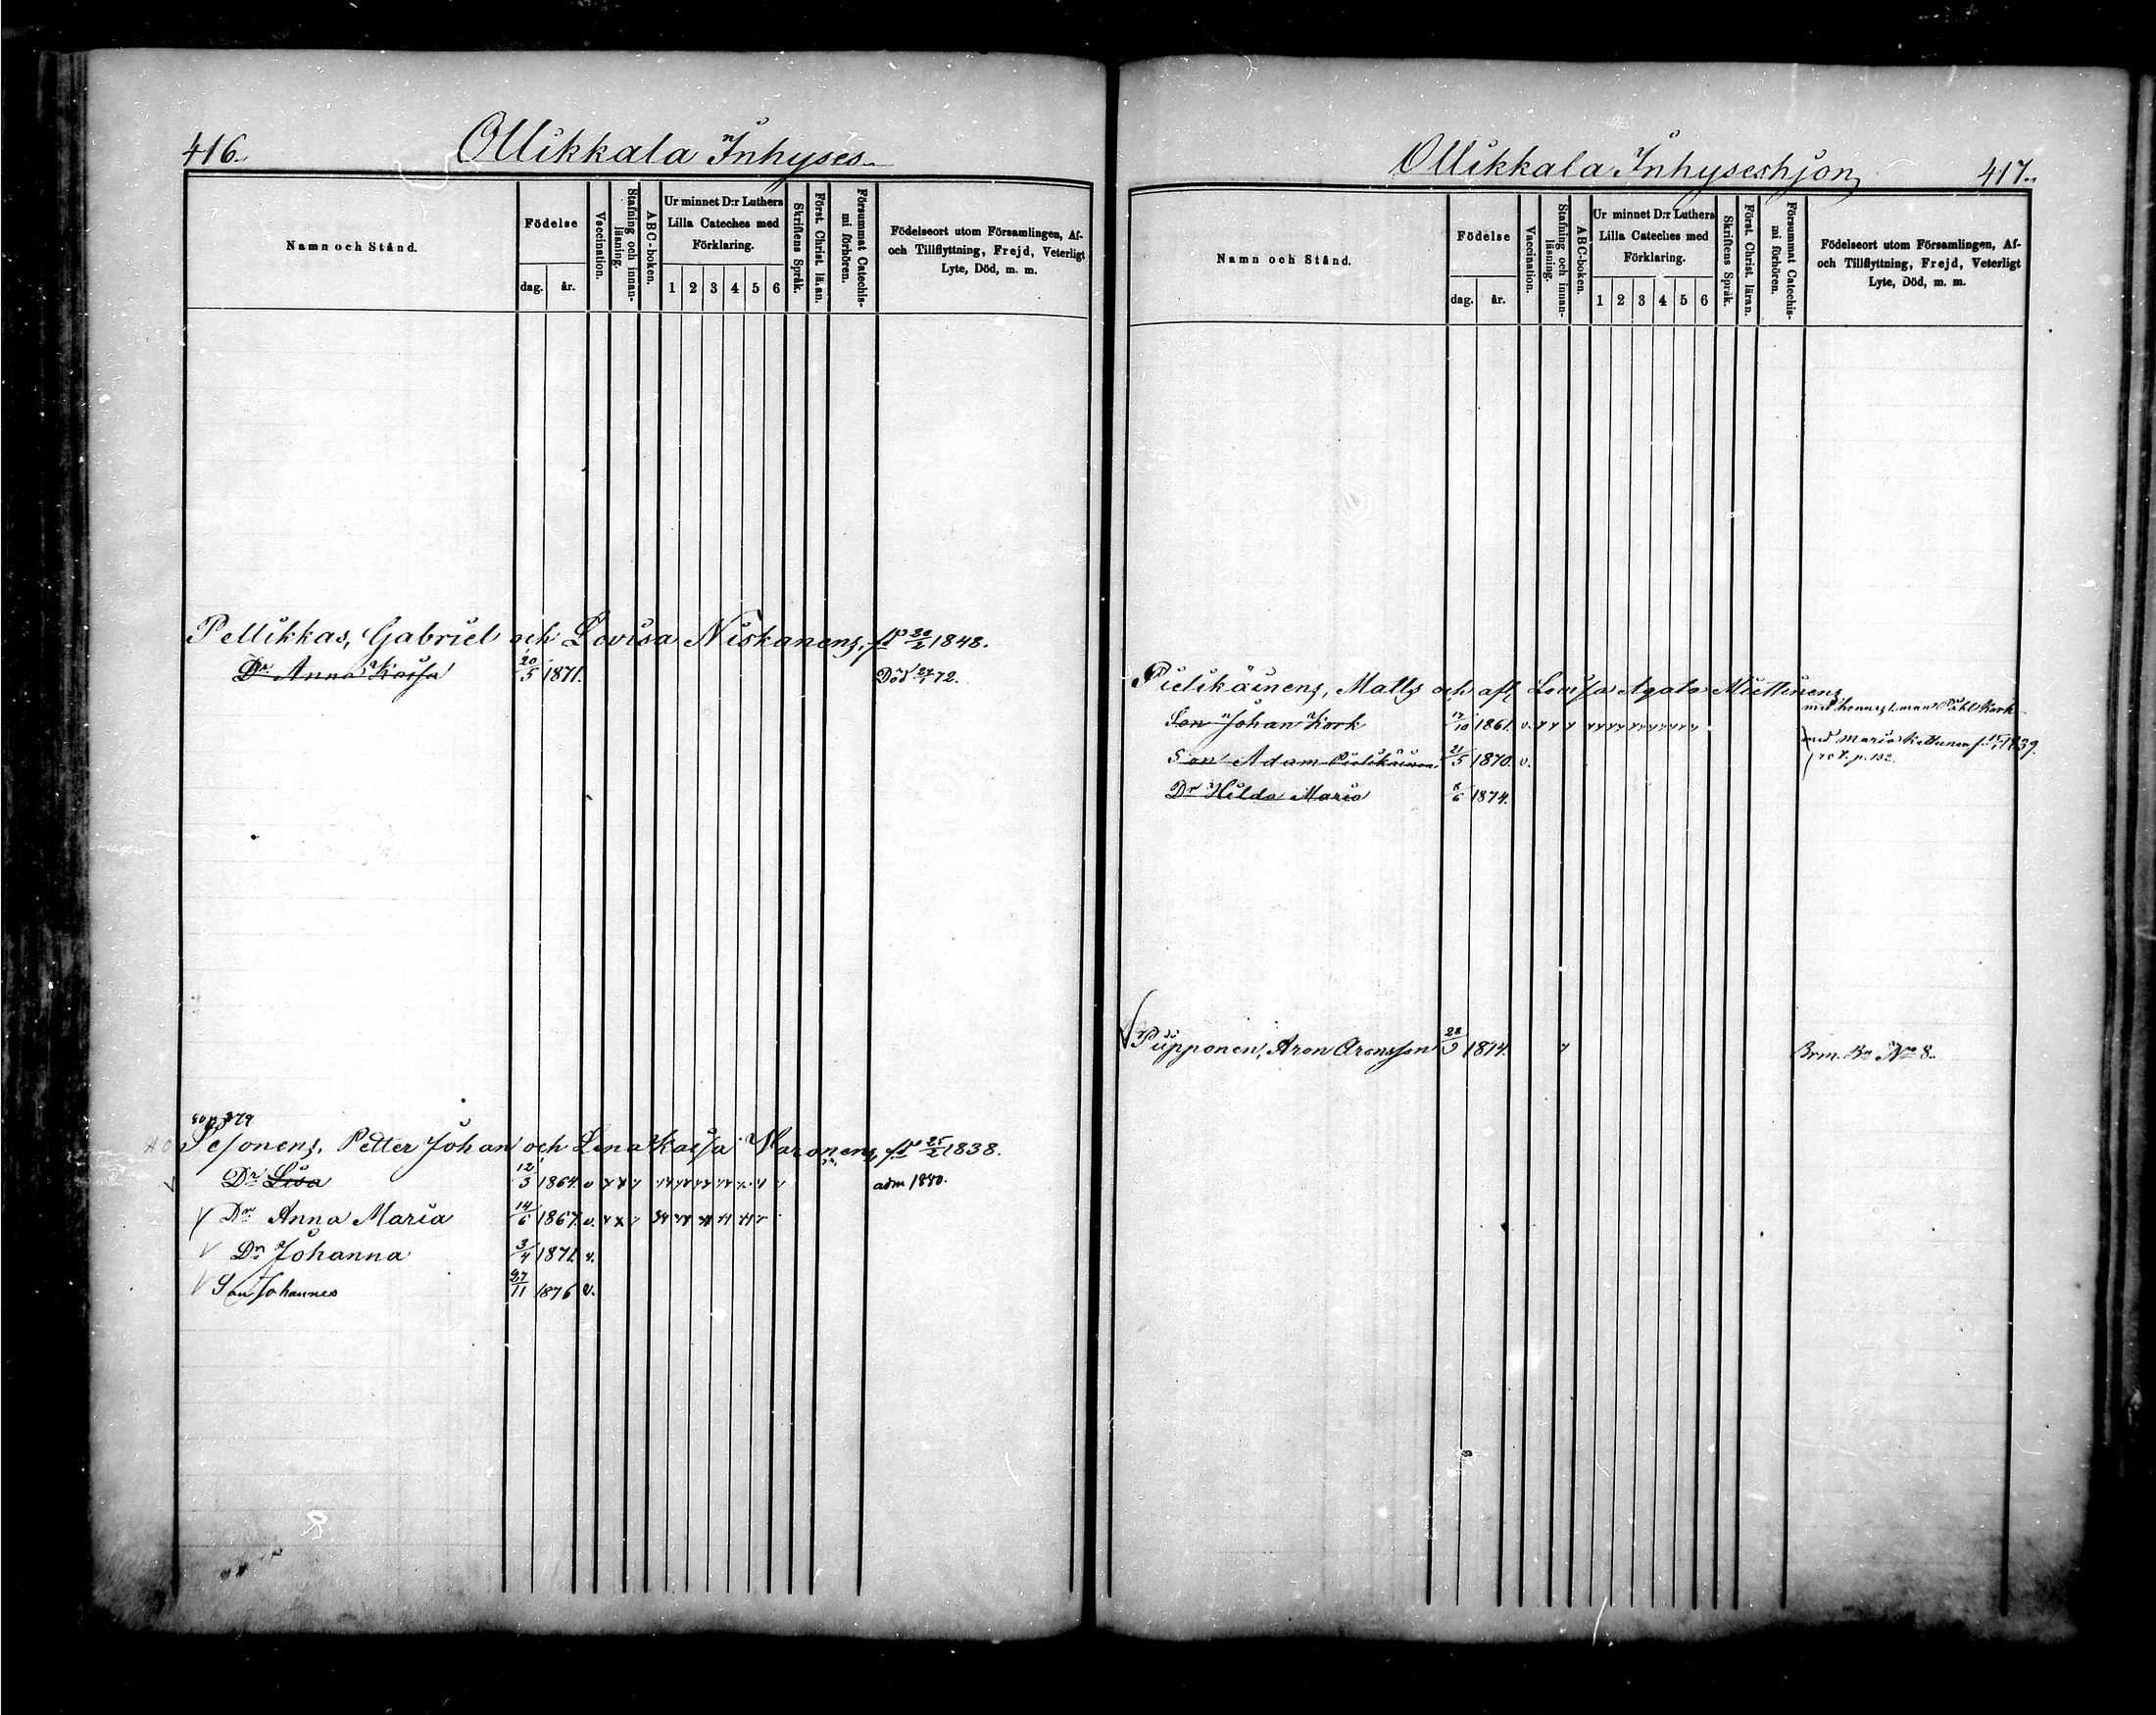 416.
Ollikkala Inhyses
Namn och Stånd.
Födelse
dag.
år.
Vaccination.
Stafning och innan-
läsning.
ABC-boken.
Ur minnet D:r Luthers
Lilla Cateches med
Förklaring.
1 2 3 4 5 6
Skriftens Språk.
Först. Christ. läran.
Försummat Catechis-
mi förhören.
Födelseort utom Församlingen, Af-
och Tillflyttning, Frejd, Veterligt
Lyte, Död, m. m.
Pellikkas, Gabriel och Lovisa Niskanens, 20/2 1848.
Dr Anna Kaisa 20/5 1871. Död 1 72.
379
Sesonens, Petter Johan och Lena Kaisa 25/2 1838.
Dr Lisa 12/3 1864. v adm 1880.
Dr Anna Maria 14/6 1867. v.
Dr Johanna 3/4 1871. v.
Son Johannes 27/11 1876 v.
Ollikkala Inhyseshjon
417.
Namn och Stånd.
Födelse
dag.
år.
Vaccination.
Stafning och innan-
läsning.
ABC-boken.
Ur minnet D:r Luthers
Lilla Cateches med
Förklaring.
1 2 3 4 5 6
Skriftens Språk.
Först. Christ. läran.
Försummat Catechis-
mi förhören.
Födelseort utom Församlingen, Af-
och Tillflyttning, Frejd, Veterligt
Lyte, Död, m. m.
Pielikäinens, Matts och afl. Lovisa Agata Miettinens
Son Johan Kork /10 1861. v. med hennes man Påhl Kork
Son Adam Pielikäinen 21/5 1870. v. med Maria Kettunen f. 1839.
p. 132.
Dr Hilda Maria 8/6 1874.
Piipponen, Aron Aronsson 28/9 1814. Brm. No 8.